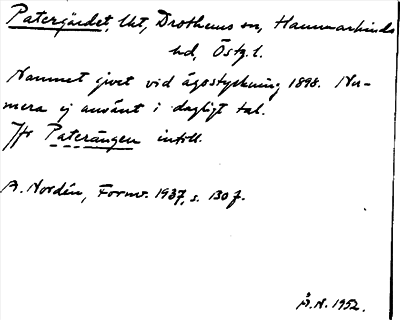 Patergärdet, lht, Drothems sn, Hammarkinds
hd, Östg. l.
Namnet givet vid ägostyckning 1898. Nu-
mera ej använt i dagligt tal.
Jfr Paterängen intill.
A. Nordén, Fornv. 1937, s. 130 f.
Å.N. 1952.